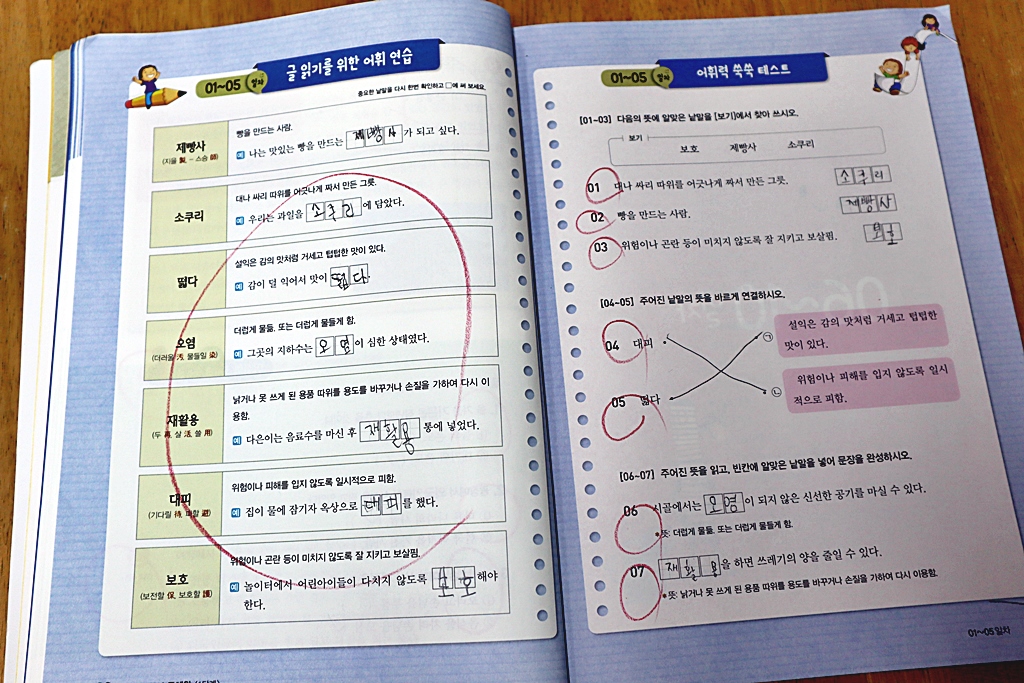 01~05 일차
글 읽기를 위한 어휘 연습
중요한 낱말을 다시 한번 확인하고 □에 써 보세요.
제빵사
(지을 製, - 스승 師)
빵을 만드는 사람.
예 나는 맛있는 빵을 만드는 제빵사가 되고 싶다.
소쿠리
대나 싸리 따위를 어긋나게 짜서 만든 그릇.
예 우리는 과일을 소쿠리에 담았다.
떫다
설익은 감의 맛처럼 거세고 텁텁한 맛이 있다.
예 감이 덜 익어서 맛이 떫다.
오염
(더러울 汚, 물들일 染)
더럽게 물듦. 또는 더럽게 물들게 함.
예 그곳의 지하수는 오염이 심한 상태였다.
재활용
(두 再, 살 活, 쓸 用)
낡거나 못 쓰게 된 용품 따위를 용도를 바꾸거나 손질을 가하여 다시 이
용함.
예 다은이는 음료수를 마신 후 재활용 통에 넣었다.
대피
(기다릴 待, 피할 避)
위험이나 피해를 입지 않도록 일시적으로 피함.
예 집이 물에 잠기자 옥상으로 대피를 했다.
보호
(보전할 保, 보호할 護)
위험이나 곤란 등이 미치지 않도록 잘 지키고 보살핌.
예 놀이터에서 어린아이들이 다치지 않도록 보호해야
한다.
01~05 일차
어휘력 쑥쑥 테스트
[01-03] 다음의 뜻에 알맞은 낱말을 [보기]에서 찾아 쓰시오.
보기
보호 제빵사 소쿠리
01 대나 싸리 따위를 어긋나게 짜서 만든 그릇. 소쿠리
02 빵을 만드는 사람. 제빵사
03 위험이나 곤란 등이 미치지 않도록 잘 지키고 보살핌. 보호
[04-05] 주어진 낱말의 뜻을 바르게 연결하시오.
04 대피
㉠ 설익은 감의 맛처럼 거세고 텁텁한
맛이 있다.
05 떫다
㉡ 위험이나 피해를 입지 않도록 일시
적으로 피함.
[06-07] 주어진 뜻을 읽고, 빈칸에 알맞은 낱말을 넣어 문장을 완성하시오.
06 시골에서는 오염이 되지 않은 신선한 공기를 마실 수 있다.
뜻: 더럽게 물듦. 또는 더럽게 물들게 함.
07 재활용을 하면 쓰레기의 양을 줄일 수 있다.
뜻: 낡거나 못 쓰게 된 용품 따위를 용도를 바꾸거나 손질을 가하여 다시 이용함.
01~05 일차